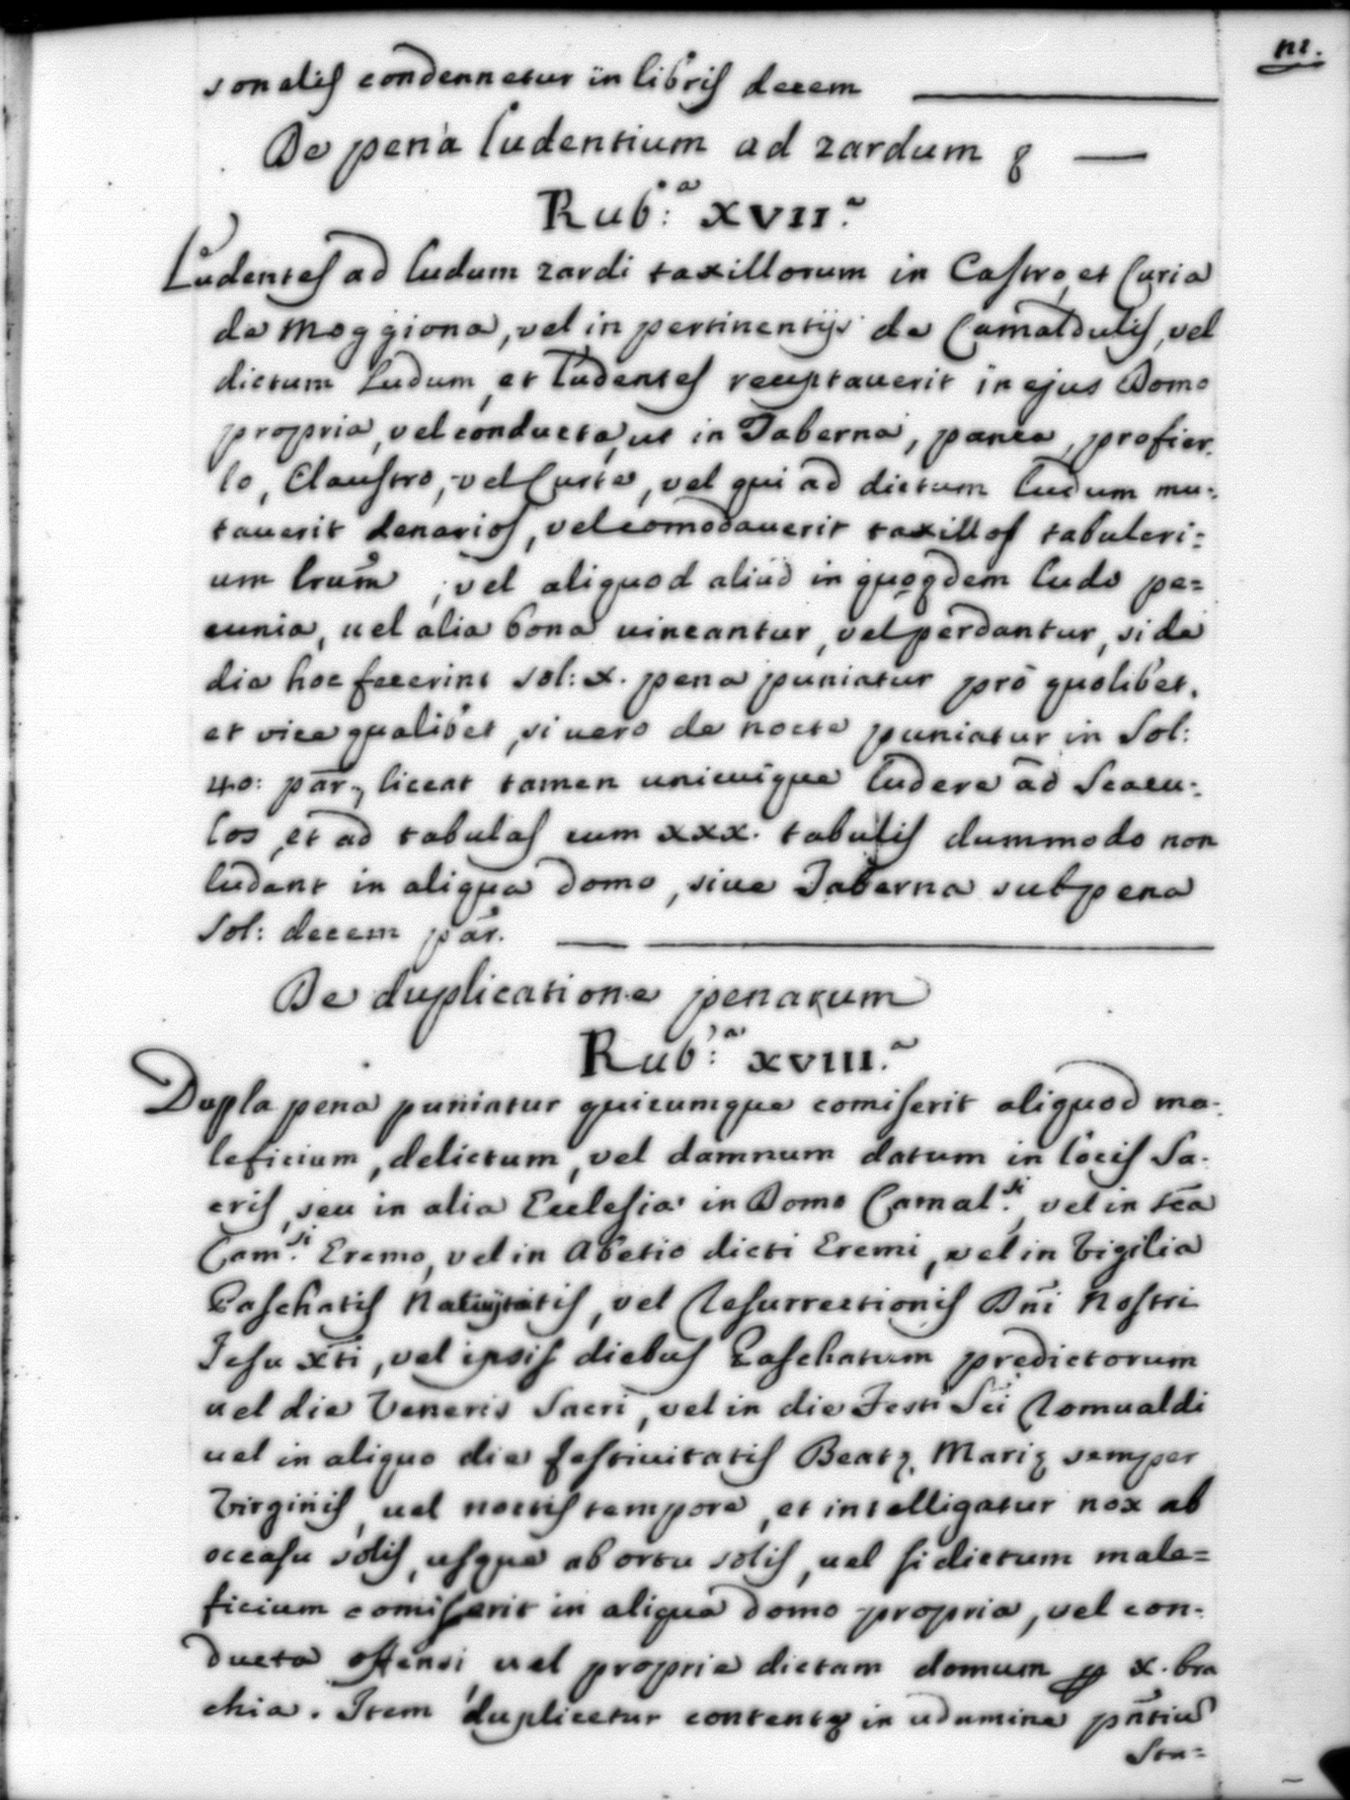 111.
sonalis condennetur in libris decem
De pena ludentium ad zardum
Rub.ª XVII.ª
Ludentes ad ludum zardi taxillorum in Castro, et Curia
de Moggiona, vel in pertinentijs de Camaldulis, vel
dictum Ludum, et ludentes receptauerit in ejus Domo
propria, vel conducta, ut in Taberna, panca, profier-
lo, Claustro, vel Curte, vel qui ad dictum ludum mu-
tauerit denarios, vel comodauerit taxillos tabuleri=
um , vel aliquod aliud in ludo pe=
cunia, uel alia bona uincantur, vel perdantur, si de
die hoc fecerint sol: x. pena puniatur pro quolibet,
et vice qualibet, si uero de nocte puniatur in Sol:
40: pār., liceat tamen unicuique ludere ad Scacu-
los, et ad tabulas cum xxx. tabulis dummodo non
ludant in aliqua domo, siue Taberna sub pena
Sol: decem pār.
De duplicatione penarum
Rub:ª XVIII.ª
Dupla pena puniatur quicumque comiserit aliquod ma-
leficium, delictum, vel damnum datum in locis Sa-
cris, seu in alia Ecclesia in Domo Camal.si, vel in scā
Cam.si Eremo, vel in Abetio dicti Eremi, vel in Vigilia
Paschatis Natiuitatis, vel Resurrectionis Dn̄i Nostri
Jesu Xti, vel ipsis diebus Paschatum predictorum
uel die Veneris Sacri, vel in die Festi Sci Romualdi
uel in aliquo die festiuitatis Beatę Marię semper
Virginis, uel noctis tempore, et intelligatur nox ab
occasu solis, usque ab ortu solis, uel si dictum male=
ficium comiserit in aliqua domo propria, vel con-
ducta offensi, uel proprie dictam domum p x. bra
chia. Item duplicetur contenta in udumine pn̄tiu
Stn=